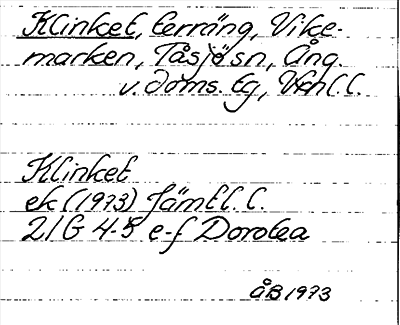 Klinket, terräng, Vike-
marken, Tåsjö sn, Ång.
v. doms. tg, Vtnl l.
Klinket
ek (1973) Jämtl. l.
21G 4-5 e-f Dorotea
ÅB 1973